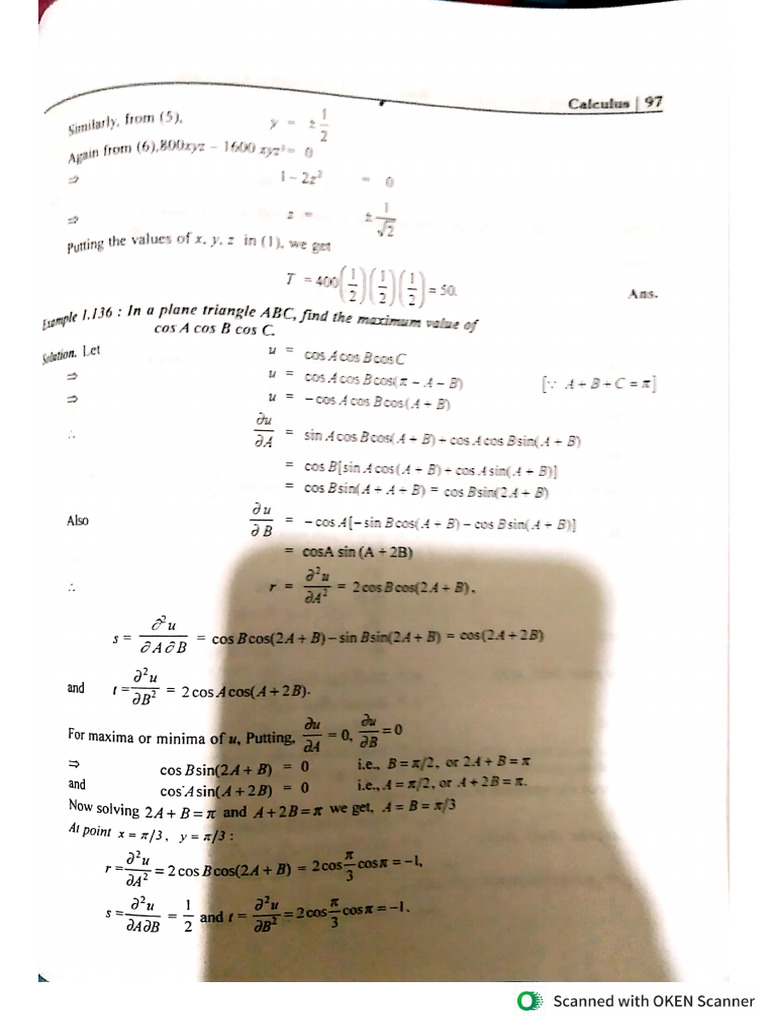 Calculus | 97
Similarly, from (5), y = ± 1/2
Again from (6), 800xyz − 1600 xyz³ = 0
⇒ 1 − 2z² = 0
⇒ z = ± 1/√2
Putting the values of x, y, z in (1), we get
T = 400(1/2)(1/2)(1/2) = 50. Ans.
Example 1.136 : In a plane triangle ABC, find the maximum value of
cos A cos B cos C.
Solution. Let u = cos A cos B cos C
⇒ u = cos A cos B cos(π − A − B) [∵ A + B + C = π]
⇒ u = −cos A cos B cos(A + B)
∴ ∂u/∂A = sin A cos B cos(A + B) + cos A cos B sin(A + B)
= cos B[sin A cos(A + B) + cos A sin(A + B)]
= cos B sin(A + A + B) = cos B sin(2A + B)
Also ∂u/∂B = −cos A[−sin B cos(A + B) − cos B sin(A + B)]
= cosA sin (A + 2B)
∴ r = ∂²u/∂A² = 2 cos B cos(2A + B),
s = ∂²u/∂A∂B = cos B cos(2A + B) − sin B sin(2A + B) = cos(2A + 2B)
and t = ∂²u/∂B² = 2 cos A cos(A + 2B).
For maxima or minima of u, Putting, ∂u/∂A = 0, ∂u/∂B = 0
⇒ cos B sin(2A + B) = 0 i.e., B = π/2, or 2A + B = π
and cos A sin(A + 2B) = 0 i.e., A = π/2, or A + 2B = π.
Now solving 2A + B = π and A + 2B = π we get, A = B = π/3
At point x = π/3, y = π/3 :
r = ∂²u/∂A² = 2 cos B cos(2A + B) = 2cos π/3 cos π = −1,
s = ∂²u/∂A∂B = 1/2 and t = ∂²u/∂B² = 2cos π/3 cos π = −1.
Scanned with OKEN Scanner